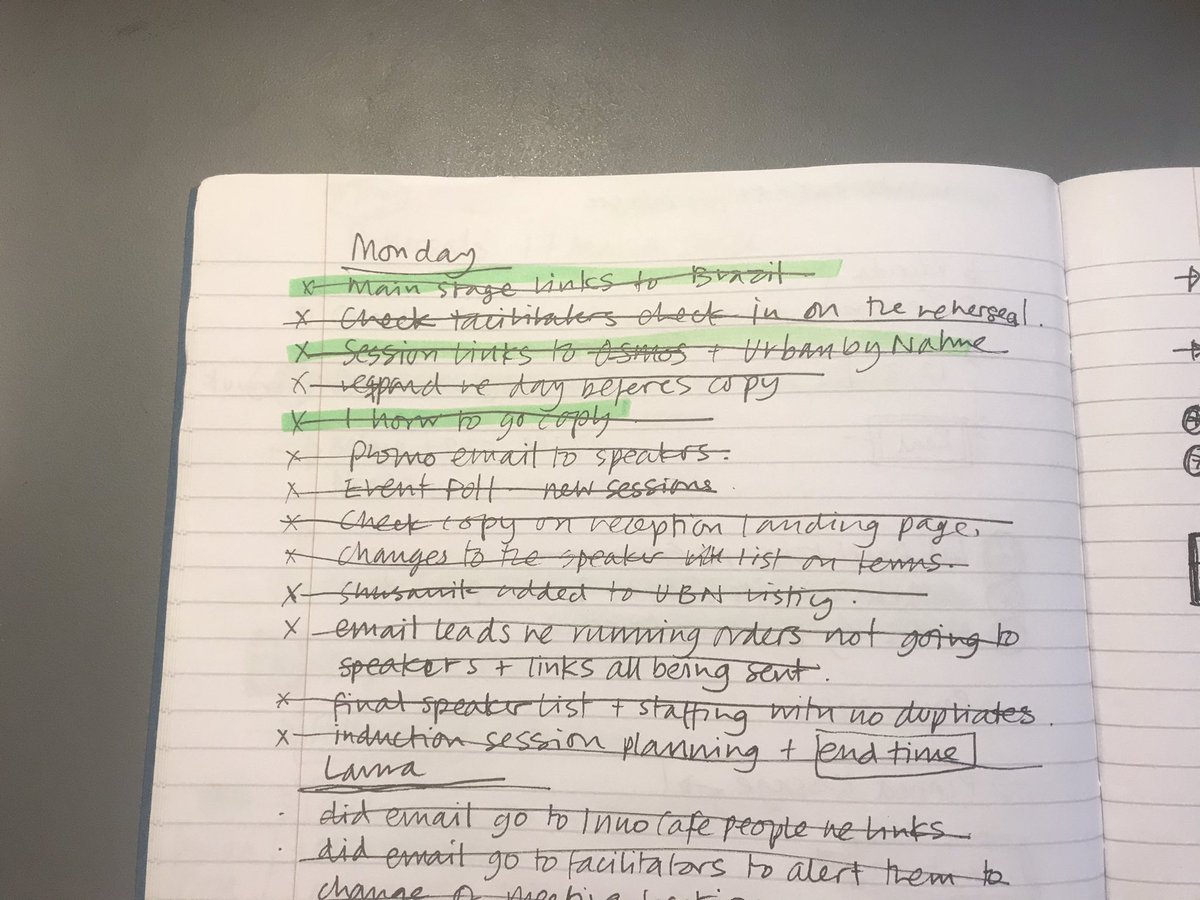 Monday
x Main stage links to Brazil
x Check facilitators check in on the rehersal.
x Session links to Osmos + Urban by Nature
x respond re day beferes copy
x 1 hour to go copy
x Promo email to speakers.
x Event Poll - new sessions
x Check copy on reception landing page.
x changes to the speaker list on teams.
x Shusanik added to UBN listing.
x email leads re running orders not going to
speakers + links all being sent.
x final speaker list + staffing with no duplicates.
x induction session planning + end time
Lama
· did email go to Inno Cafe people re links
· did email go to facilitators to alert them to
change of meeting